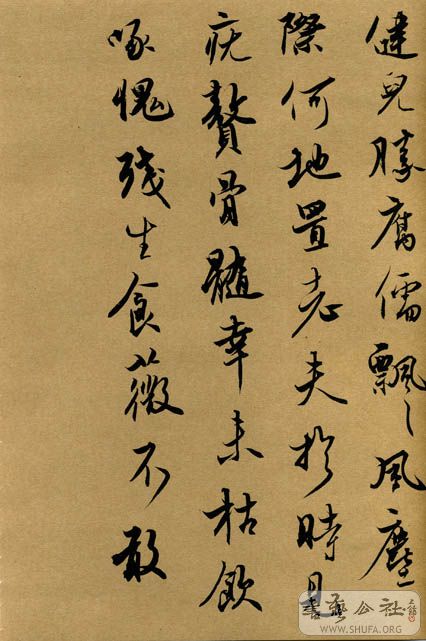 健兒勝腐儒飄〻風塵
際何地置老夫於時見
疣贅骨髓幸未枯飲
啄愧殘生食薇不敢
書藝公社
WWW.SHUFA.ORG